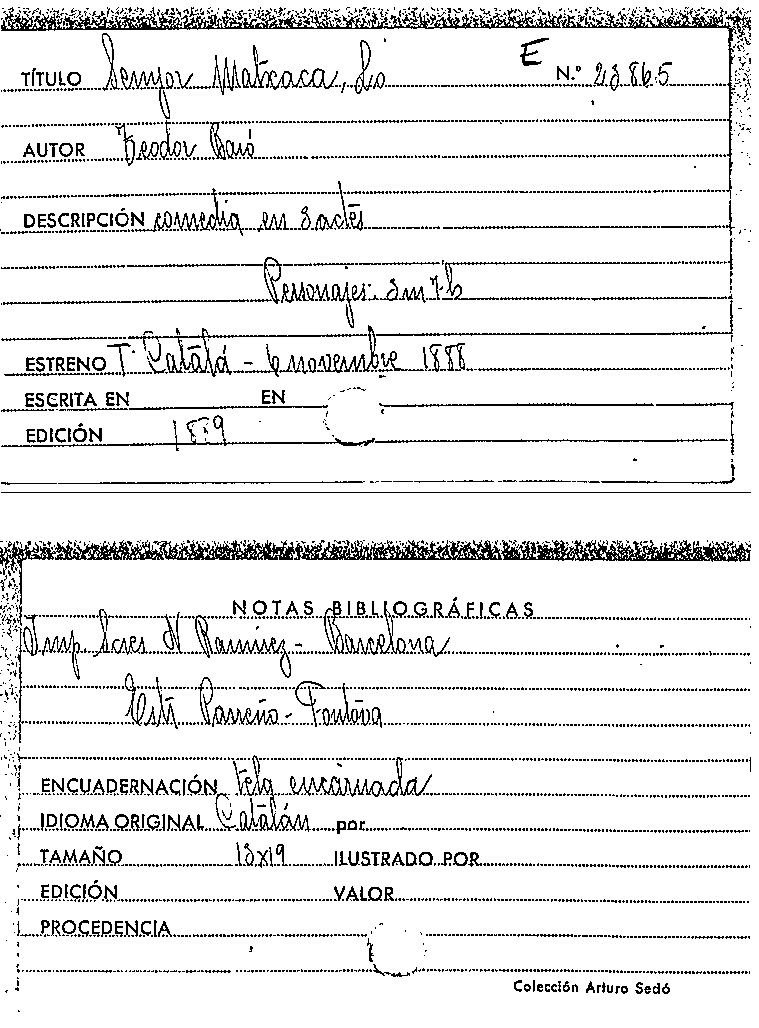 TÍTULO Senyor Matxaca, Lo E N.º 23865
AUTOR Teodor Baró
DESCRIPCIÓN comedia en 3 actes
Personajes: 3m 7h
ESTRENO T. Catalá - 6 novembre 1888
ESCRITA EN EN
EDICIÓN 1889
NOTAS BIBLIOGRÁFICAS
Imp. Scres N Ramirez - Barcelona
Estr Parreño - Fontova
ENCUADERNACIÓN tela encarnada
IDIOMA ORIGINAL Catalán por
TAMAÑO 13x19 ILUSTRADO POR
EDICIÓN VALOR
PROCEDENCIA
Colección Arturo Sedó